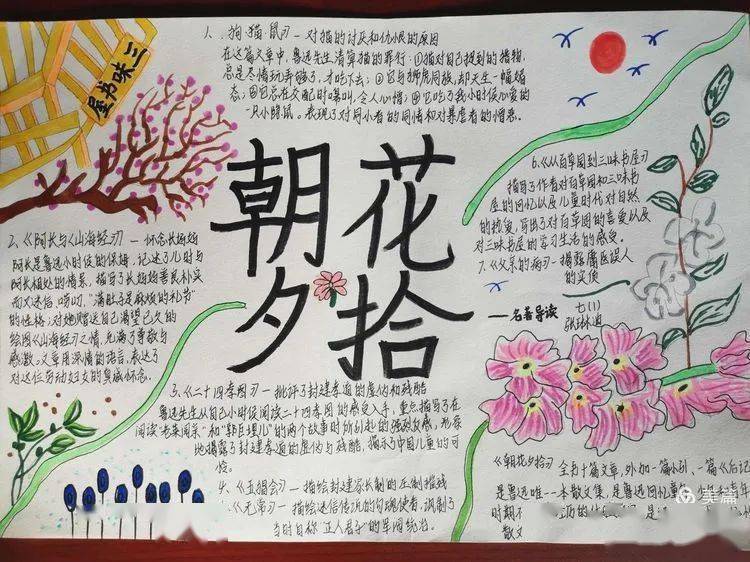 三味书屋
1、《狗·猫·鼠》—对猫的讨厌和仇恨的原因
在这篇文章中，鲁迅先生清算猫的罪行：①猫对自己捉到的猎物，
总是尽情玩弄够了，才吃下去；②它与狮虎同族，却天生一幅媚
态；③它总在交配时嗥叫，令人心烦；④它吃了我小时候心爱的
一只小隐鼠。表现了对弱小者的同情和对暴虐者的憎恶。
朝花
夕拾
—名著导读
七(1)
2、《阿长与《山海经》》—怀念长妈妈
阿长是鲁迅小时候的保姆，记述了儿时与
阿长相处的情景，描写了长妈妈善良朴实
而又迷信、唠叨、"满肚子是麻烦的礼节"
的性格；对她赠送自己渴望已久的
绘图《山海经》之情，充满了尊敬与
感激。文章用深情的语言，表达了
对这位劳动妇女的真诚怀念。
3、《二十四孝图》—批评了封建孝道的虚伪和残酷
鲁迅先生从自己小时候阅读二十四孝图的感受入手，重点描写了在
阅读"老莱娱亲"和"郭巨埋儿"的两个故事时所引起的强烈反感，形象
地揭露了封建孝道的虚伪与残酷，揭示了中国儿童的可
怜。
4、《五猖会》—描绘封建家长制的压制摧残
《无常》—描绘迷信传说的勾魂使者，讽刺了
当时自称"正人君子"的军阀统治。
6、《从百草园到三味书屋》
描写了作者对百草园和三味书
屋的回忆以及儿童时代对自然
的热爱，写出了对百草园的喜爱以及
对三味书屋的学习生活的感受。
7、《父亲的病》—揭露庸医误人
的实质
《朝花夕拾》全书十篇文章，外加一篇小引，一篇《后记
是鲁迅唯一一本散文集，是鲁迅回忆
时期不
散文
美篇